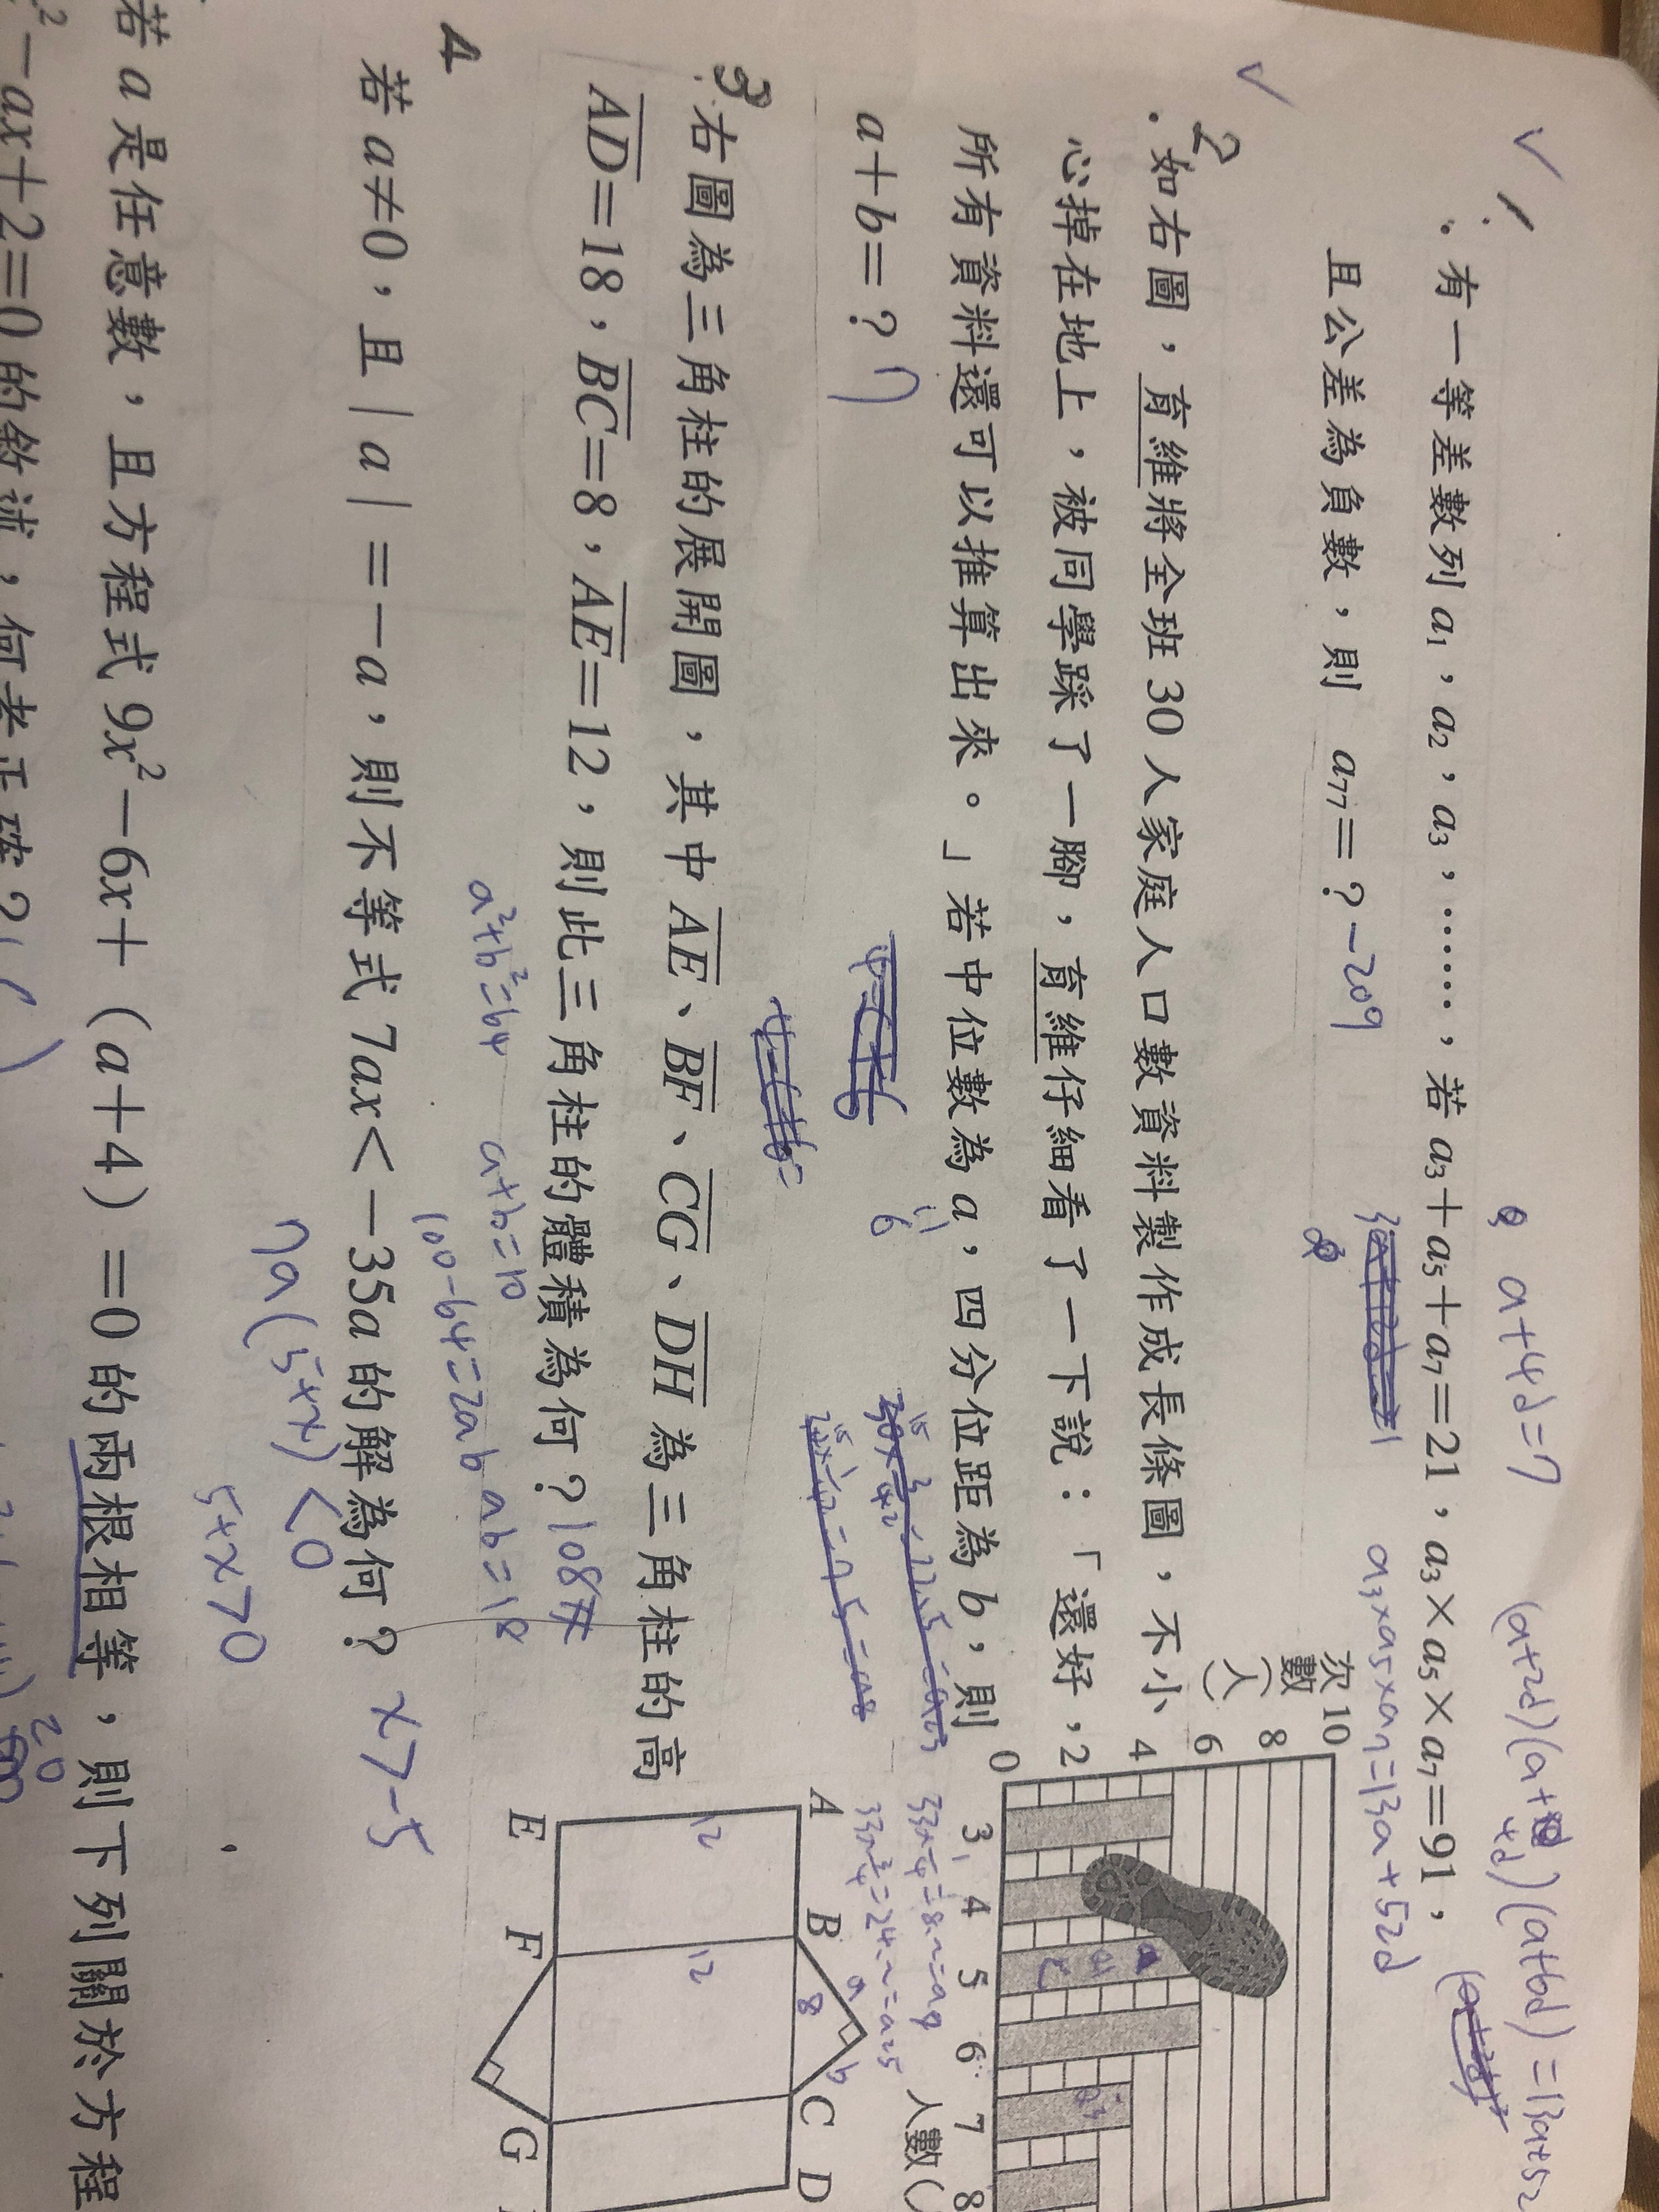 a+4d=7
(a+2d)(a+4d)(a+6d)=13a+52
1. 有一等差數列 a₁，a₂，a₃，……，若 a₃＋a₅＋a₇＝21，a₃×a₅×a₇＝91，
a₃×a₅×a₇=13a+52d
且公差為負數，則 a₇₇＝？-209
2. 如右圖，育維將全班 30 人家庭人口數資料製作成長條圖，不小
心掉在地上，被同學踩了一腳，育維仔細看了一下說：「還好，
所有資料還可以推算出來。」若中位數為 a，四分位距為 b，則
a＋b＝？7
次數（人）
10
8
6
4
2
0
3 4 5 6 7 8
人數（
3. 右圖為三角柱的展開圖，其中 AE、BF、CG、DH 為三角柱的高
AD＝18，BC＝8，AE＝12，則此三角柱的體積為何？108
a²+b²=64 a+b=10
100-64=2ab ab=18
A B C D
12 12 a 8 b
E F G
4
若 a≠0，且｜a｜＝－a，則不等式 7ax＜－35a 的解為何？ x>-5
7a(5+x)<0
5+x>0
若 a 是任意數，且方程式 9x²－6x＋（a＋4）＝0 的兩根相等，則下列關於方程
²－ax＋2＝0 的敘述，何者正確？（ ）